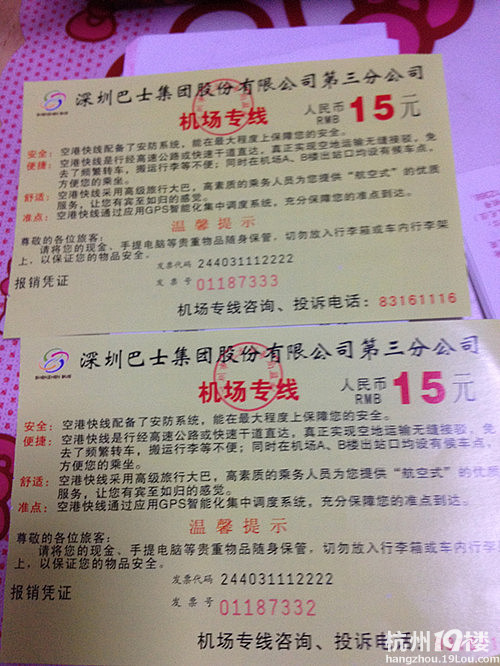 深圳巴士集团股份有限公司第三分公司
SHENZHEN BUS
机场专线
人民币
RMB
15元
安全：空港快线配备了安防系统，能在最大程度上保障您的安全。
便捷：空港快线是行经高速公路或快速干道直达，真正实现空地运输无缝接驳，免
去了频繁转车，搬运行李等不便；同时在机场A、B楼出站口均设有候车点，
方便您的乘坐。
舒适：空港快线采用高级旅行大巴，高素质的乘务人员为您提供“航空式”的优质
服务，让您有宾至如归的感觉。
准点：空港快线通过应用GPS智能化集中调度系统，充分保障您的准点到达。
温馨提示
尊敬的各位旅客：
请将您的现金、手提电脑等贵重物品随身保管，切勿放入行李箱或车内行李架
上，以保证您的物品安全。
发票代码 244031112222
报销凭证
发票号 01187333
机场专线咨询、投诉电话：83161116
深圳巴士集团股份有限公司第三分公司
SHENZHEN BUS
机场专线
人民币
RMB
15元
安全：空港快线配备了安防系统，能在最大程度上保障您的安全。
便捷：空港快线是行经高速公路或快速干道直达，真正实现空地运输无缝接驳，免
去了频繁转车，搬运行李等不便；同时在机场A、B楼出站口均设有候车点，
方便您的乘坐。
舒适：空港快线采用高级旅行大巴，高素质的乘务人员为您提供“航空式”的优质
服务，让您有宾至如归的感觉。
准点：空港快线通过应用GPS智能化集中调度系统，充分保障您的准点到达。
温馨提示
尊敬的各位旅客：
请将您的现金、手提电脑等贵重物品随身保管，切勿放入行李箱或车内行李
上，以保证您的物品安全。
发票代码 244031112222
报销凭证
发票号 01187332
机场专线咨询、投诉电话：
杭州19楼
hangzhou.19lou.com